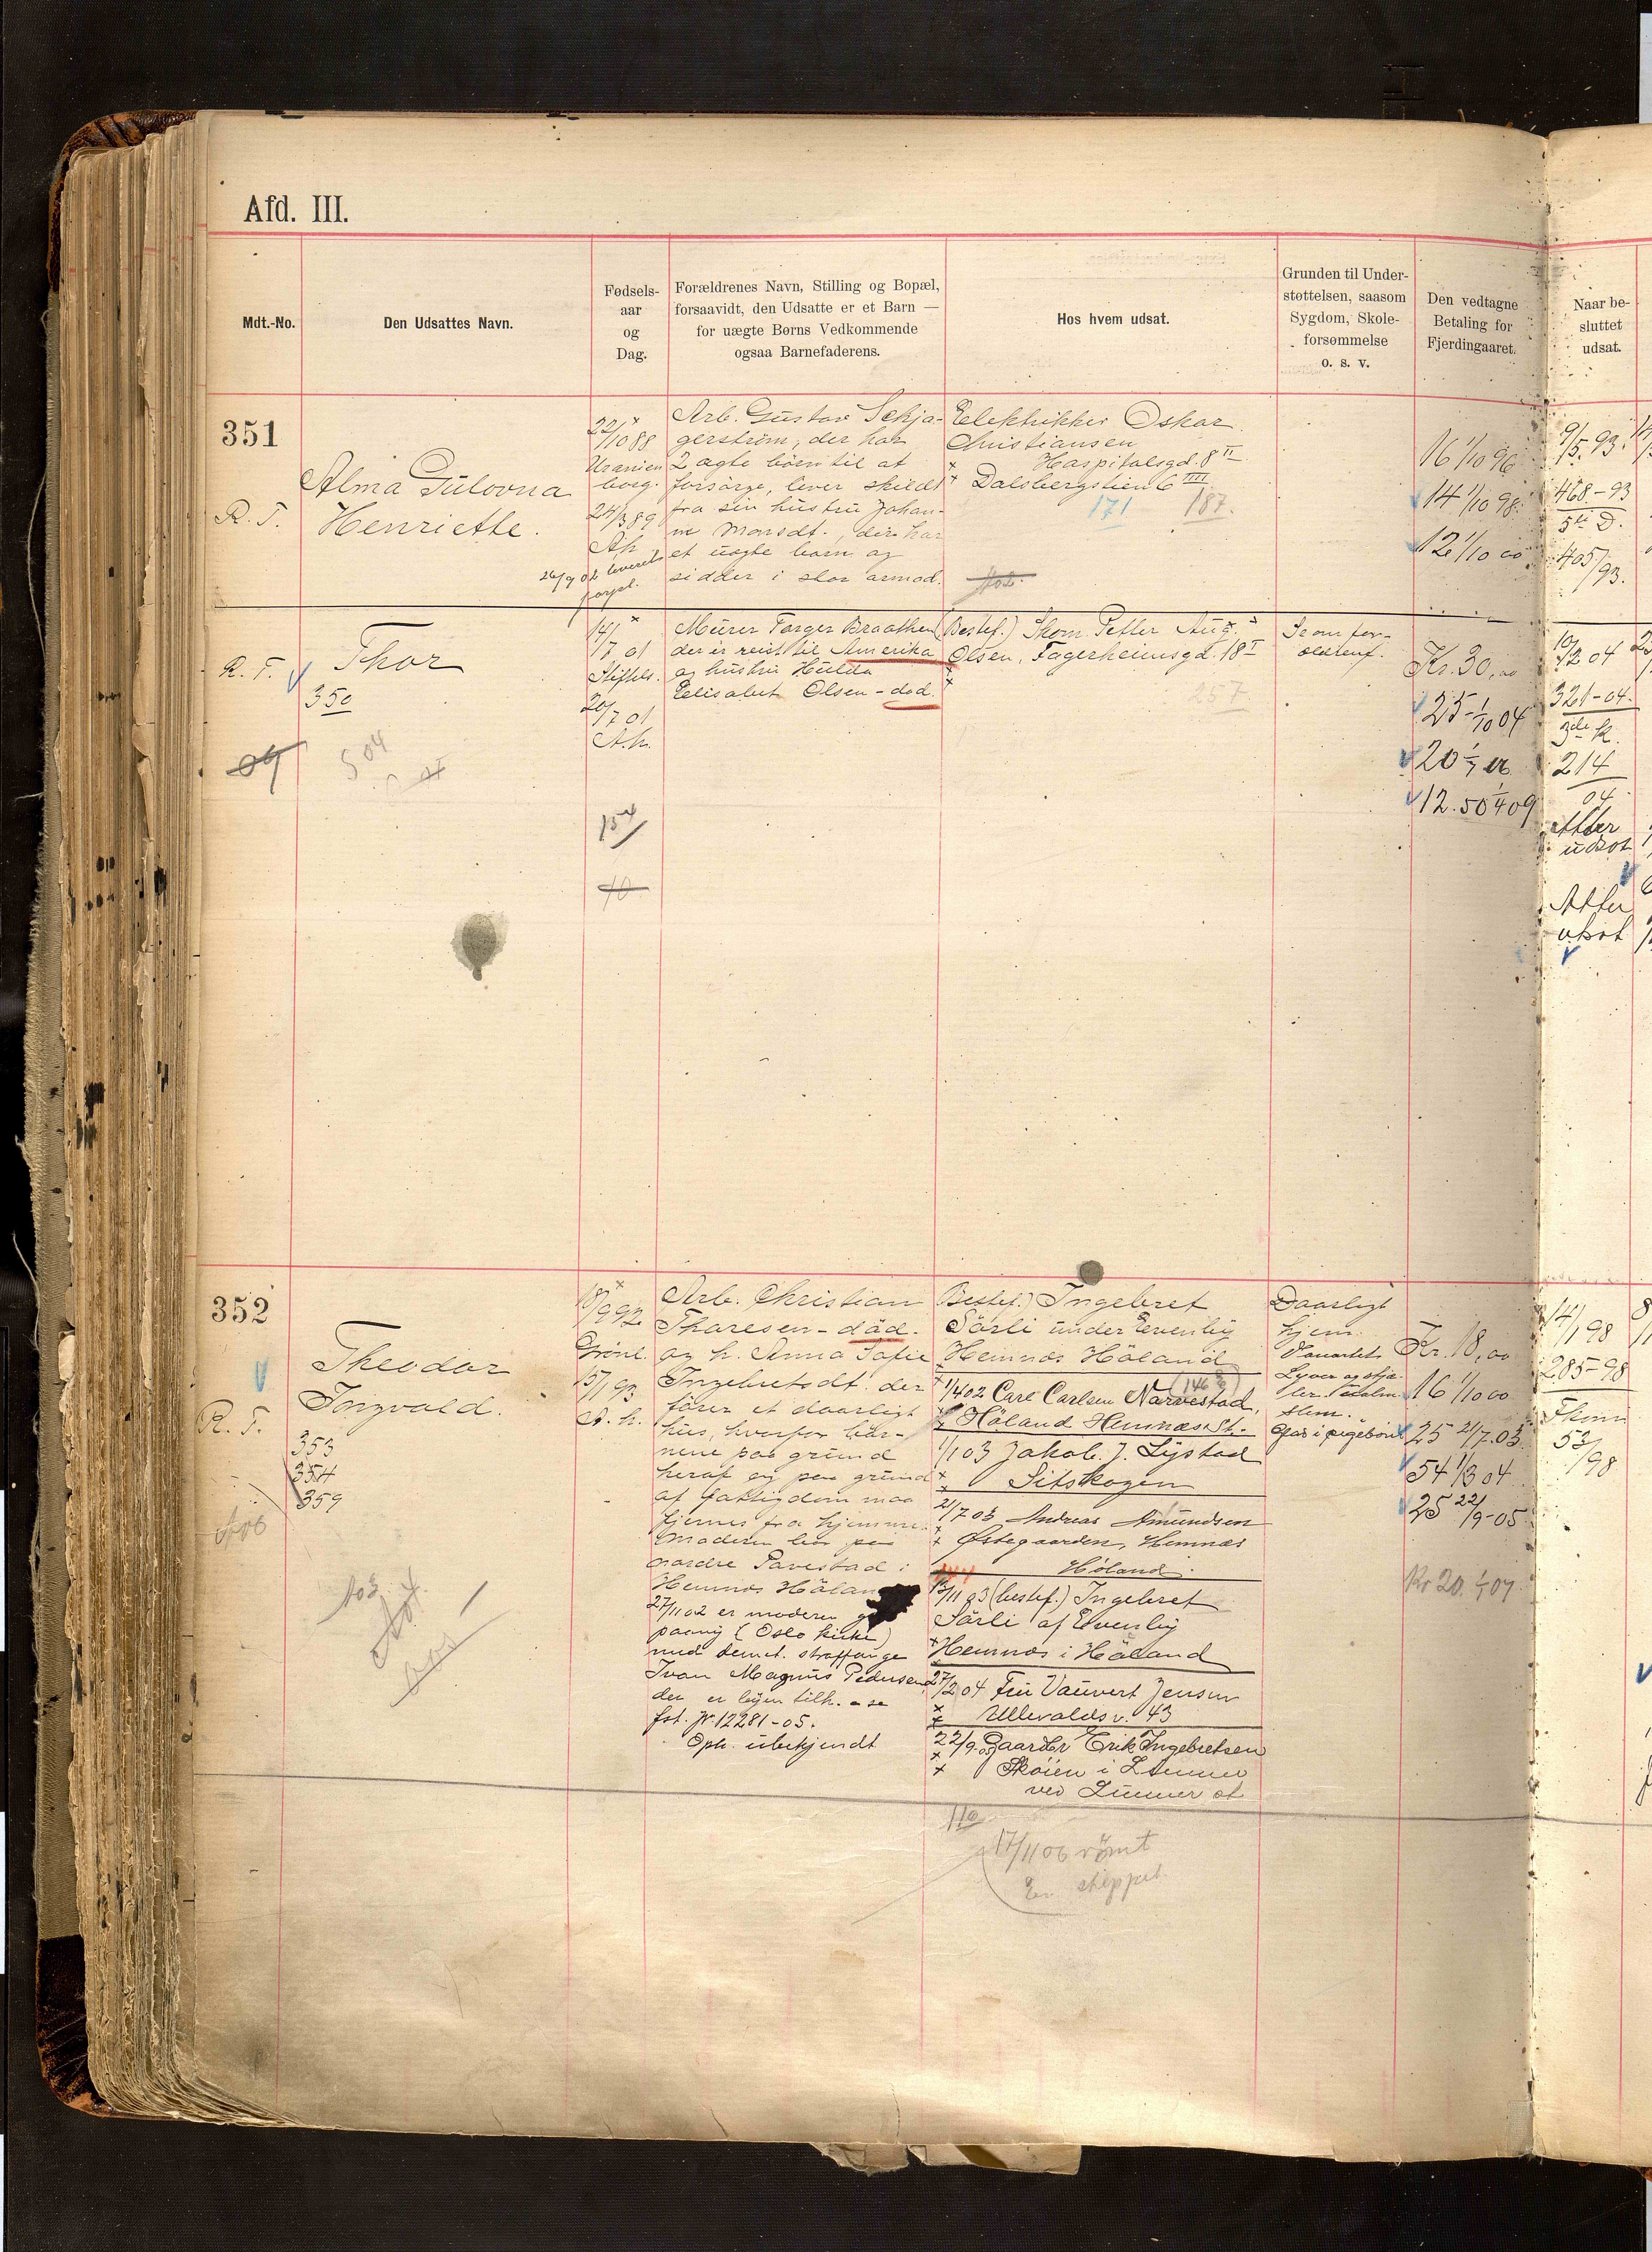 Afd. III.
Mdt.-No.
Den Udsattes Navn.
Fødsels-
aar
og
Dag.
Forældrenes Navn, Stilling og Bopæl,
forsaavidt, den Udsatte er et Barn —
for uægte Børns Vedkommende
ogsaa Barnefaderens.
Hos hvem udsat.
Grunden til Under-
støttelsen, saasom
Sygdom, Skole-
forsømmelse
o. s. v.
Den vedtagne
Betaling for
Fjerdingaaret.
Naar be-
sluttet
udsat.
351
R. F.
Alma Gulovna
Henriette.
22/10 88
Uranien
borg.
24/3 89
A.h.
26/9 02 leveret
forpl.
Arb. Gustav Schja-
gerstrøm, der har
2 ægte børn til at
forsørge, lever skildt
fra sin hustru Johan-
ne Monsdt., der har
et uægte barn og
sidder i stor armod.
Elektrikker Oskar
Christiansen
Hospitalsgd. 8 II
Dalsbergstien 6 III
171 187.
16 1/10 96
14 1/10 98.
12 1/10 00
9/5 93.
468-93
5te D.
405/93.
R. F.
Thor
350
09
504
14/7 01
Stiftels.
20/7 01
A.h.
154
10
Murer Torger Braathen
der er reist til Amerika
og hustru Hulda
Elisabet Olsen - død.
(Bestef.) Skom. Petter Aug.
Olsen, Fagerheimsgd. 18 I
257
Se om for-
ældrene.
Kr. 30,00
25 - 1/10 04
20 1/7
12.50 1/4 09
10/12 04
321-04.
3die k.
214
04.
Atter
udsat
Atter
udsat
352
R. F.
Theodor
Ingvald.
353
354
359
18/9 92
Grønl.
15/1 93
A. h.
Arb. Christian
Thoresen - død.
og h. Anna Sofie
Ingebretsdt. der
fører et daarligt
hus, hvorfor bør-
nene paa grund
heraf og paa grund
af fattigdom maa
fjernes fra hjemme.
Moderen bor paa
nordre Tavestad i
Hemnes Høland
27/11 02 er moderen
paany (Oslo kirke)
med demit. straffange
Ivan Magnus Pedersen
der er byen tilh. - se
fst. Jr. 12281-05.
Oph. ubekjendt
(Bestef.) Ingebret
Sørli under Evenby
Hemnes Høland
1/4 02 Carl Carlsen Narvestad,
Høland Hemnæs St.
1/1 03 Jakob J. Lystad
Sitskogen
2/7 03 Andreas Amundsen
Østegaarden, Hemnæs
Høland.
13/11 03 (bestef.) Ingebret
Sørli af Evenby
Hemnæs i Høland
27/2 04 Fru Vauvert Jensen
Ullevoldsv. 43
22/9 05 Gaardbr Erik Ingebretsen
Skøien i Lunner
ved Lunner st
110
17/11 06 rømt
Er sluppet
Daarligt
hjem.
Vanartet.
Lyver og stjæ-
ler.
slem.
Kr. 18,00
16 1/10 00
25 2/7 03.
54 1/3 04
25 22/9-05
Kr 20. 1/1 07
14/1 98
285-98
53/98